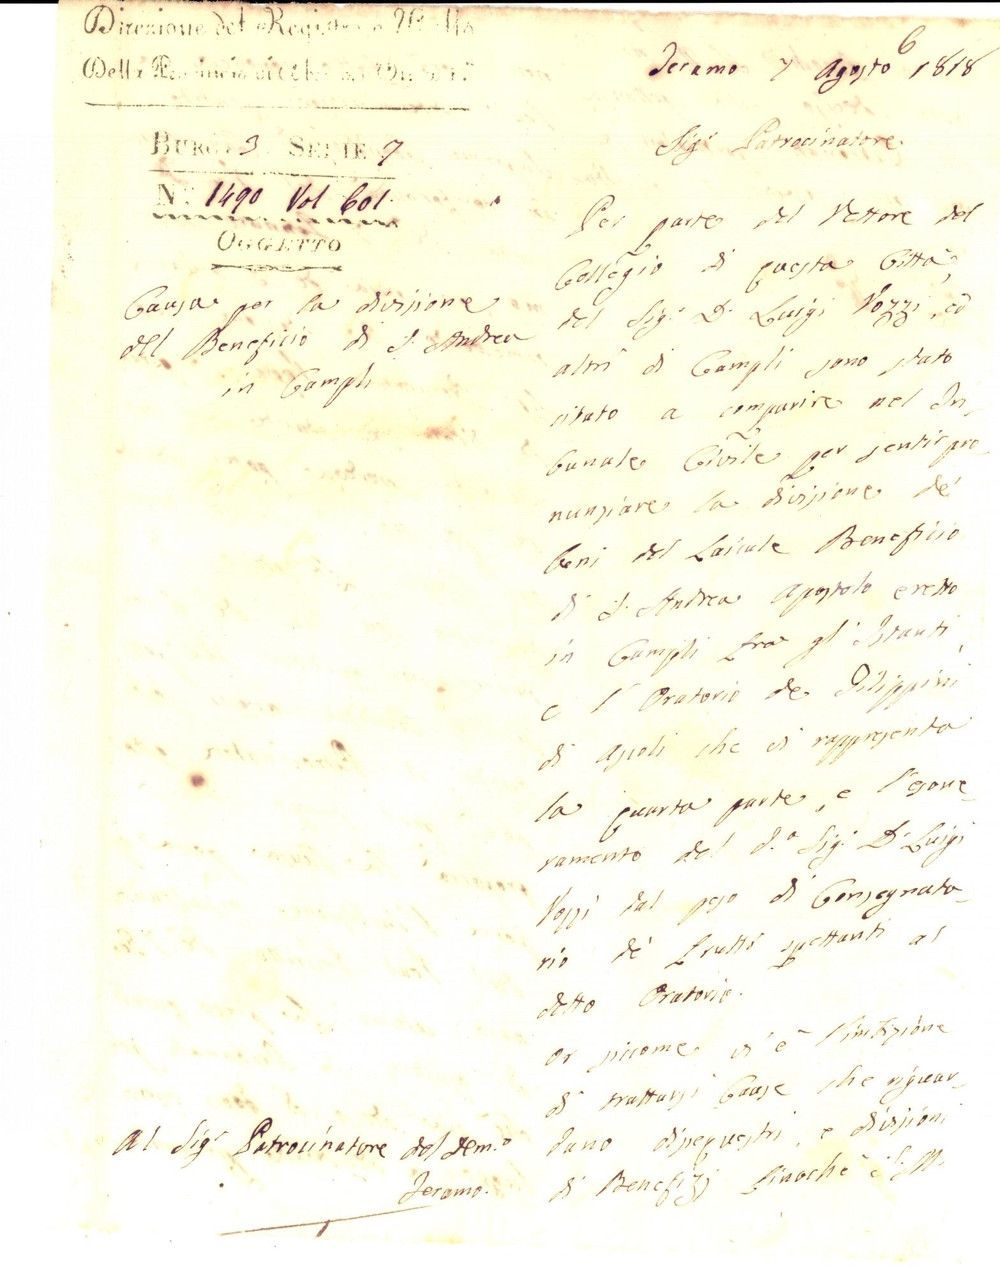 Direzione del Registro e Bollo
Della Provincia di
BURÒ 3 SERIE 7
N.º 1490 Vol 601.
OGGETTO
Causa per la divisione
del Beneficio di S. Andrea
in Campli
Al Sigr. Patrocinatore del Dem.º
Teramo.
Teramo 7 Agosto 1818
6
Sigr. Patrocinatore
Per parte del Rettore del
Collegio di questa Città,
del Sigr. D. Luigi Vozzi, ed
altri di Campli sono stato
citato a comparire nel Tri,,
bunale Civile per sentir pro,,
nunziare la divisione de'
beni del Laicale Beneficio
di S. Andrea Apostolo eretto
in Campli tra gl' Istanti,
e l' Oratorio de Filippini
di Ascoli che vi rappresenta
la quarta parte, e l'esone,,
ramento del d.º Sigr. D. Luigi
Vozzi dal peso di Consegnata,,
rio de' frutti spettanti al
detto Oratorio.
Or siccome vi è l'inibizione
di trattarsi Cause che riguar,,
dano disequestri, e divisioni
di Benefizj finochè S. M.